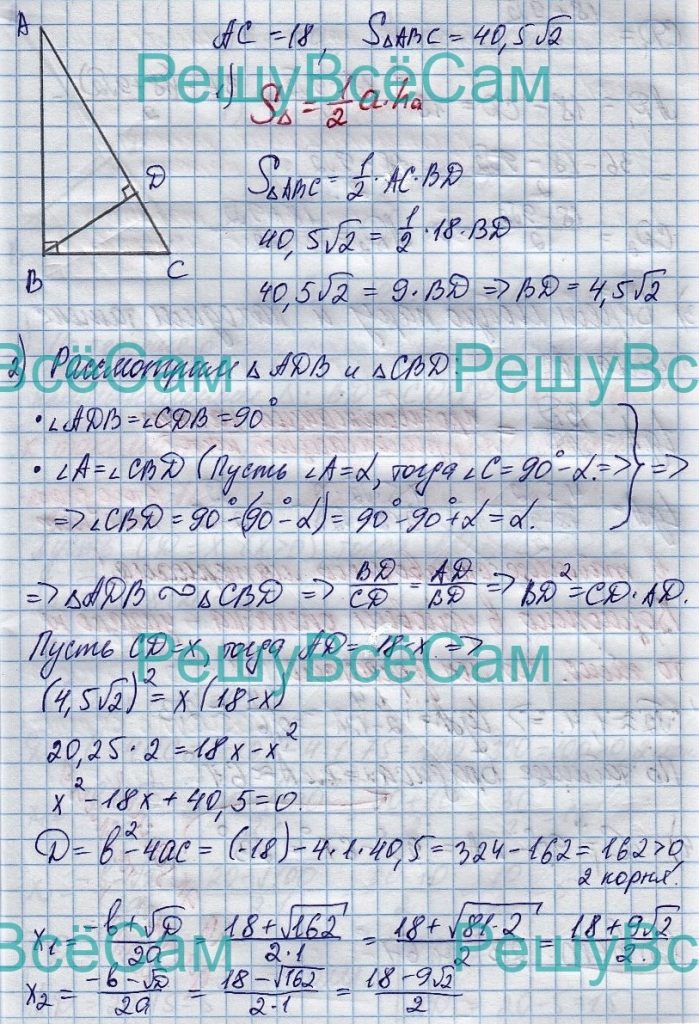 A
D
B
C
AC = 18, S△ABC = 40,5√2
РешуВсёСам
1) S△ = 1/2 a·hₐ
S△ABC = 1/2 · AC · BD
40,5√2 = 1/2 · 18 · BD
40,5√2 = 9 · BD => BD = 4,5√2
2) Рассмотрим △ADB и △CBD:
ВсёСам РешуВс
• ∠ADB = ∠CDB = 90°
• ∠A = ∠CBD (Пусть ∠A = α, тогда ∠C = 90° - α. => } =>
=> ∠CBD = 90° - (90° - α) = 90° - 90° + α = α.
=> △ADB ∼ △CBD => BD/CD = AD/BD => BD² = CD · AD.
Пусть CD = x, тогда AD = 18 - x =>
РешуВсёСам
(4,5√2)² = x (18 - x)
20,25 · 2 = 18x - x²
x² - 18x + 40,5 = 0.
D = b² - 4ac = (-18) - 4 · 1 · 40,5 = 324 - 162 = 162 > 0,
2 корня!
x₁ = (-b + √D)/2a = (18 + √162)/(2·1) = (18 + √(81·2))/2 = (18 + 9√2)/2.
ВсёСам РешуВс
x₂ = (-b - √D)/2a = (18 - √162)/(2·1) = (18 - 9√2)/2